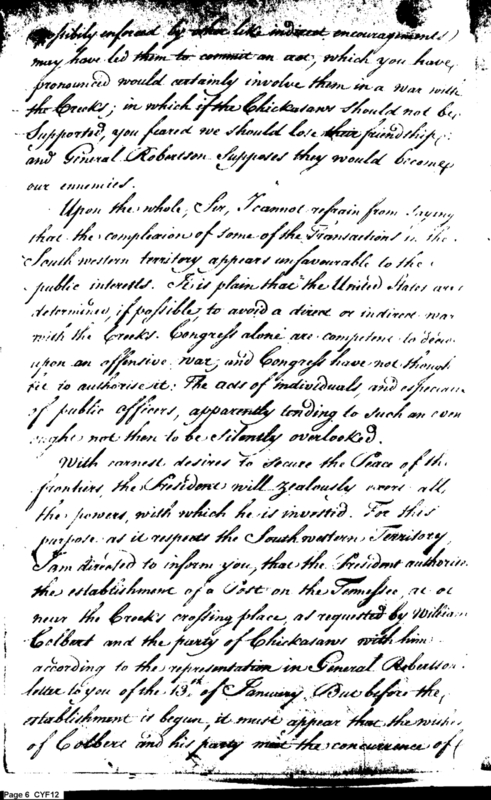 possibly enforced by other like indirect encouragements)
may have led them to commit an act, which you have
pronounced would certainly involve them in a war with
the Creeks; in which if the Chickasaws should not be
supported, you feared we should lose their friendship;
and General Robertson supposes they would become
our ennemies.
Upon the whole, Sir, I cannot refrain from saying
that the complexion of some of the Transactions in the
South western territory appears unfavourable to the
public interests. It is plain that the United States are
determined, if possible, to avoid a direct or indirect war
with the Creeks. Congress alone are competent to
upon an offensive war, and Congress have not thought
fit to authorise it: The acts of individuals, and especially
of public officers, apparently tending to such an event
ought not then to be silently overlooked.
With earnest desires to secure the Peace of the
frontiers, the President will zealously exert all
the powers, with which he is invested. For this
purpose as it respects the Southwestern Territory,
I am directed to inform you, that the President authorises
the establishment of a Post on the Tennessee, at or
near the Creeks crossing place, as requested by William
Colbert and the party of Chickasaws with him
according to the representation in General Robertson
letter to you of the 13th of January. But before the
establishment is begun, it must appear that the wishes
of Colbert and his party meet the concurrence of
Page 6 CYF12